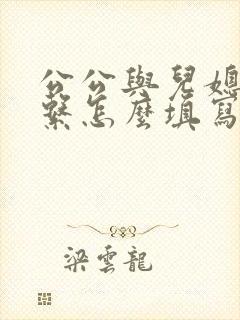 公公與兒媳
繫怎麼填寫
梁雲龍